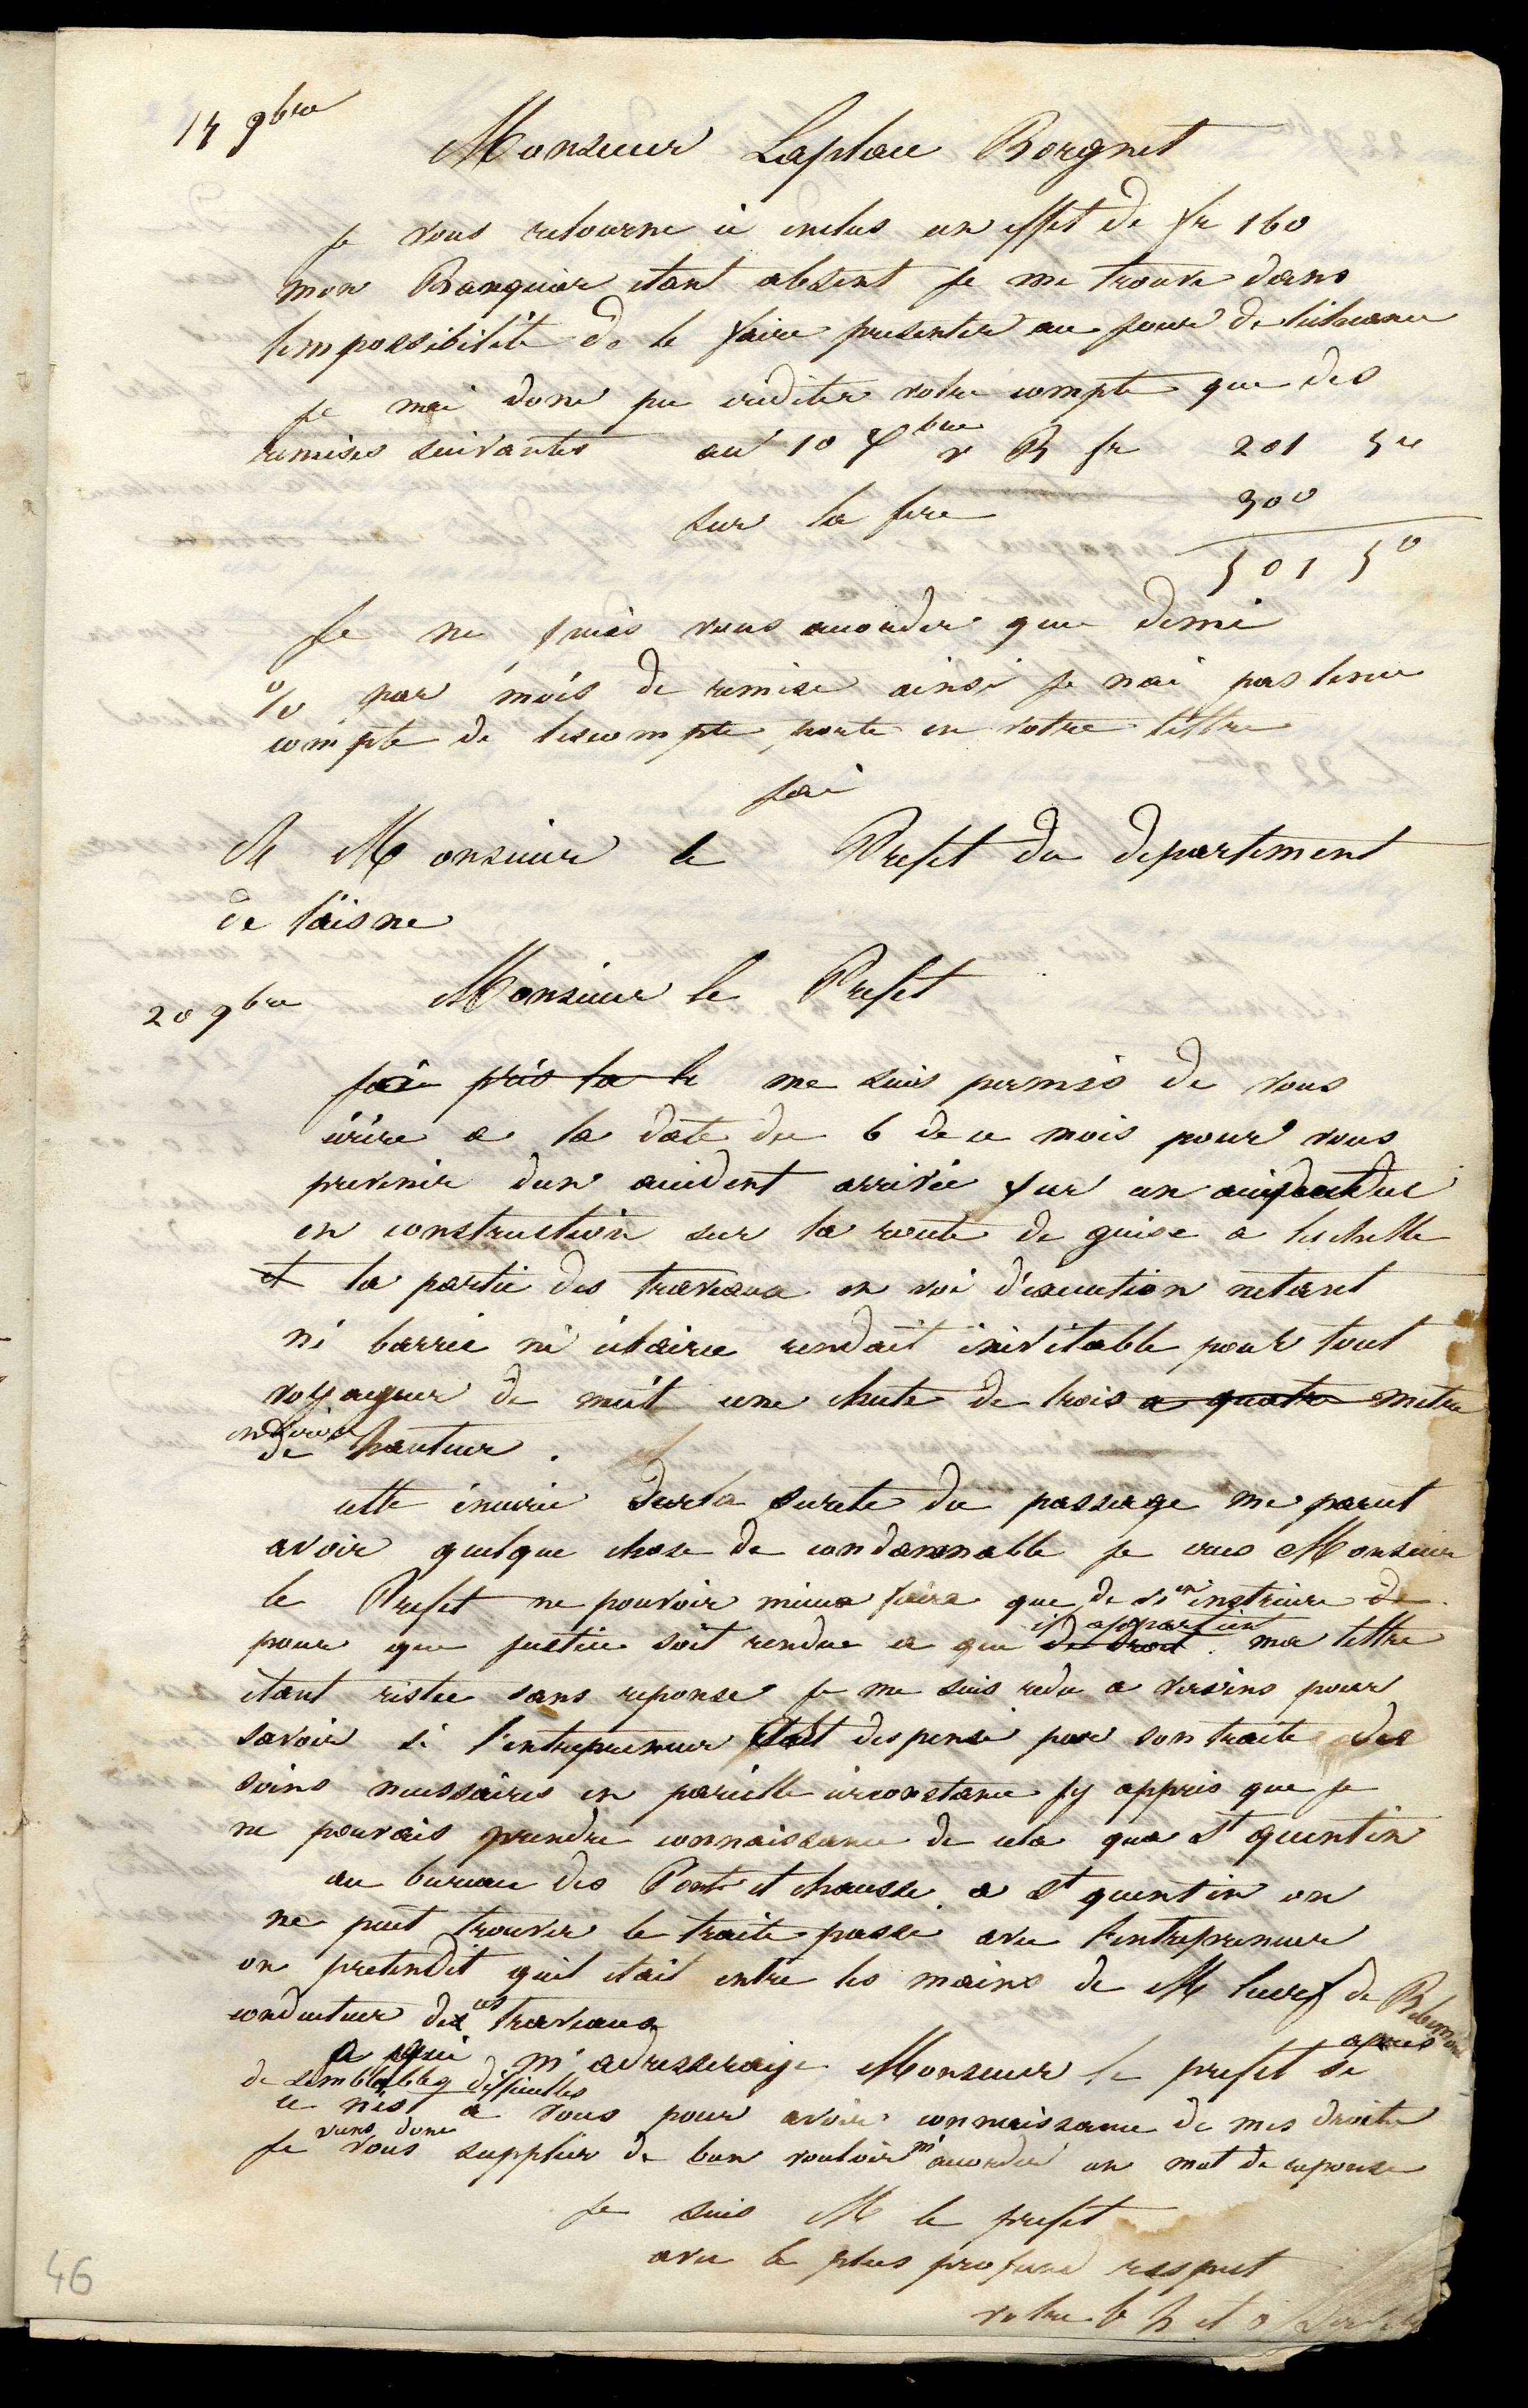 15 9bre
Monsieur Laplace Borgnet
Je vous retourne ci inclus un effet de fr 160
mon Banquier etant absent je me trouve dans
limpossibilité de le faire presenter au jour de lécheance
je nai donc pu créditer votre compte que des
remises suivantes au 10 Xbre v B fr 201 50
sur la fere 300
501 50
Je ne puis vous accorder que demi
% par mois de remise ainsi je nai pas tenu
compte de lescompte porté en votre lettre
jai
A Monsieur le Prefet du departement
de l'aisne
20 9bre Monsieur le Prefet
jai pris la le me suis permis de vous
écrire a la date du 6 de ce mois pour vous
prevenir dun accident arrivée sur un
en construction sur la route de guise a leschelle
et la partie des travaux en voi d'execution netant
ni barrée ni éclairée rendait inévitable pour tout
voyageur de nuit une chute de trois a quatre metre
environ
de hauteur.
cette incurie sur la sureté du passage me parut
avoir quelque chose de condamnable je crus Monsieur
le Prefet ne pouvoir mieux faire que de vs en instruire de
il appartient
pour que justice soit rendue a que de droit. ma lettre
étant restée sans reponse je me suis redu a vervins pour
savoir si l'entrepreneur était dispensé par son traité des
soins necessaires en pareille circonstance jy appris que je
ne pouvais prendre connaissance de cela qua St quentin
au bureau des Pont et chaussé a St quentin on
ne put trouver le traité passé avec l'entrepreneur
on pretendit quil etait entre les mains de M de Ribemont
conducteur des ces travaux
a qui m'adresseraije Monsieur le prefet apres
de semblables difficultés si
ce n'est a vous pour avoir connaissance de mes droits
Je viens donc vous supplier de bon vouloir m'accorder un mot de reponse
Je suis M le prefet
avec le plus profond respect
votre t h et o
46